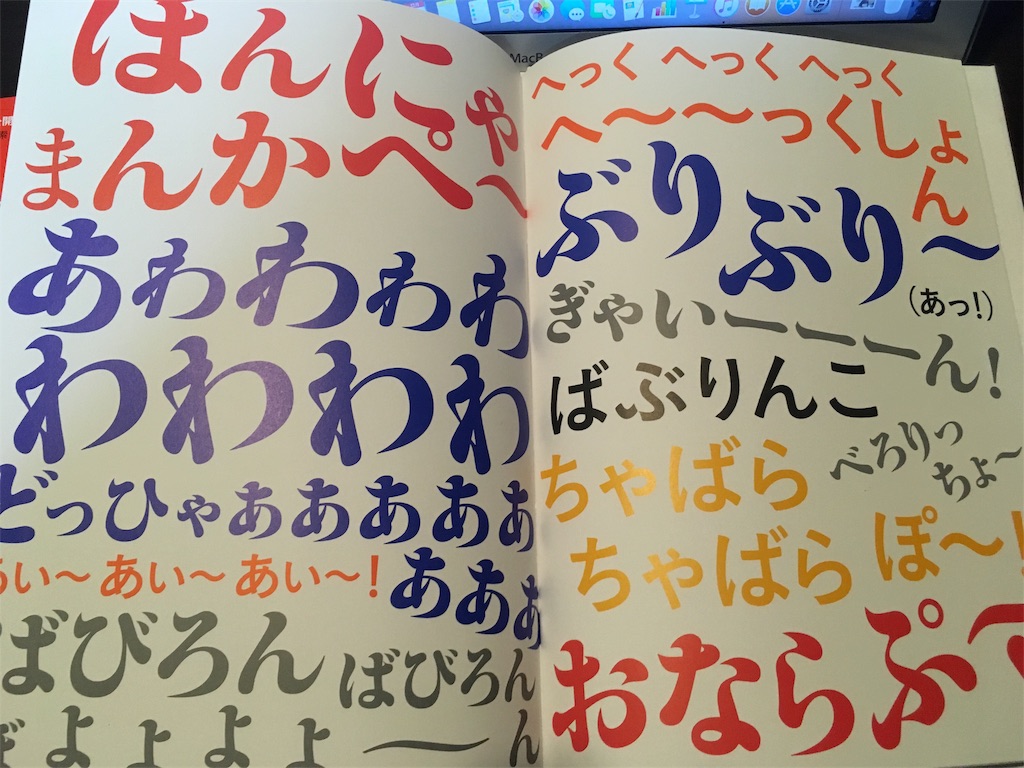 ほんにゃ
まんかぺへ
あわわわわ
わわわわ
どっひゃぁぁぁぁぁ
あい〜あい〜あい〜!
ぁぁぁ
ばびろん
ばびろんん
ぎょょょょ〜
へっくへっくへっく
へ〜〜っくしょん
ぶりぶり〜
(あっ!)
ぎゃいーーーん!
ばぶりんこ
べろりっちょ〜
ちゃばら
ちゃばらぽ〜!
おならぷ〜
MacB